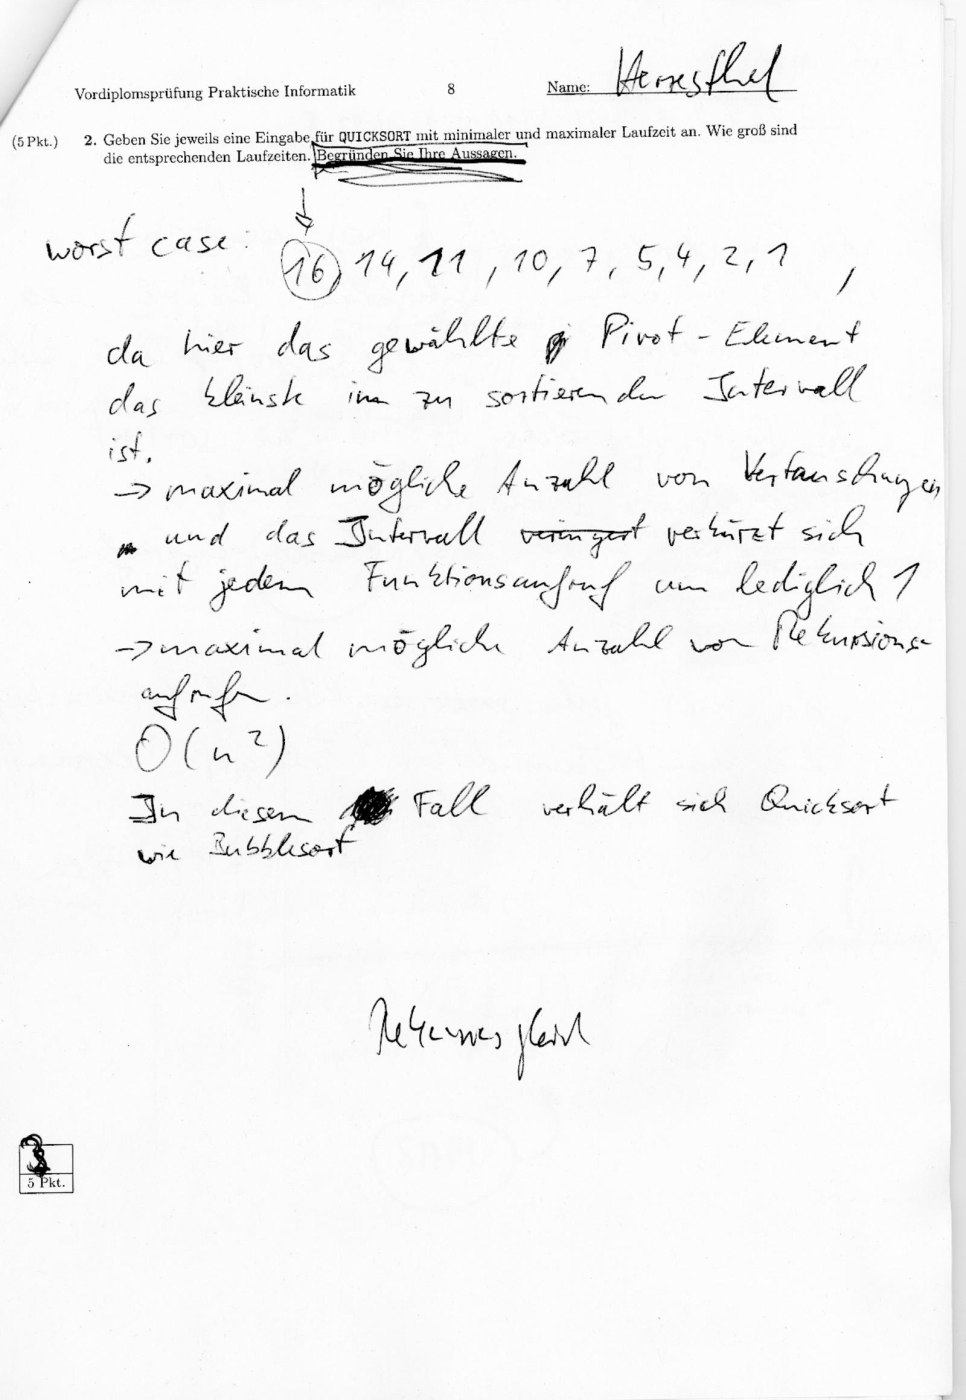 Vordiplomsprüfung Praktische Informatik 8 Name:
(5 Pkt.) 2. Geben Sie jeweils eine Eingabe für QUICKSORT mit minimaler und maximaler Laufzeit an. Wie groß sind
die entsprechenden Laufzeiten. Begründen Sie Ihre Aussagen.
worst case: 16, 14, 11, 10, 7, 5, 4, 2, 1 ,
da hier das gewählte Pivot-Element
das kleinste im zu sortierenden Intervall
ist.
-> maximal mögliche Anzahl von Vertauschungen
und das Intervall veringert verkürzt sich
mit jedem Funktionsaufruf um lediglich 1
-> maximal mögliche Anzahl von Rekursions-
aufrufen.
O(n²)
In diesem Fall verhält sich Quicksort
wie Bubblesort
5 Pkt.